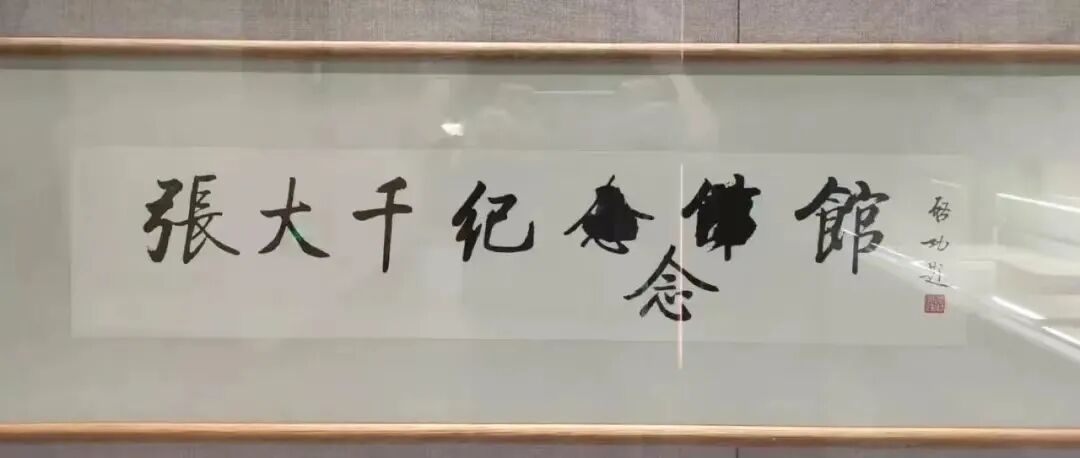 張大千纪念館
念
启功題